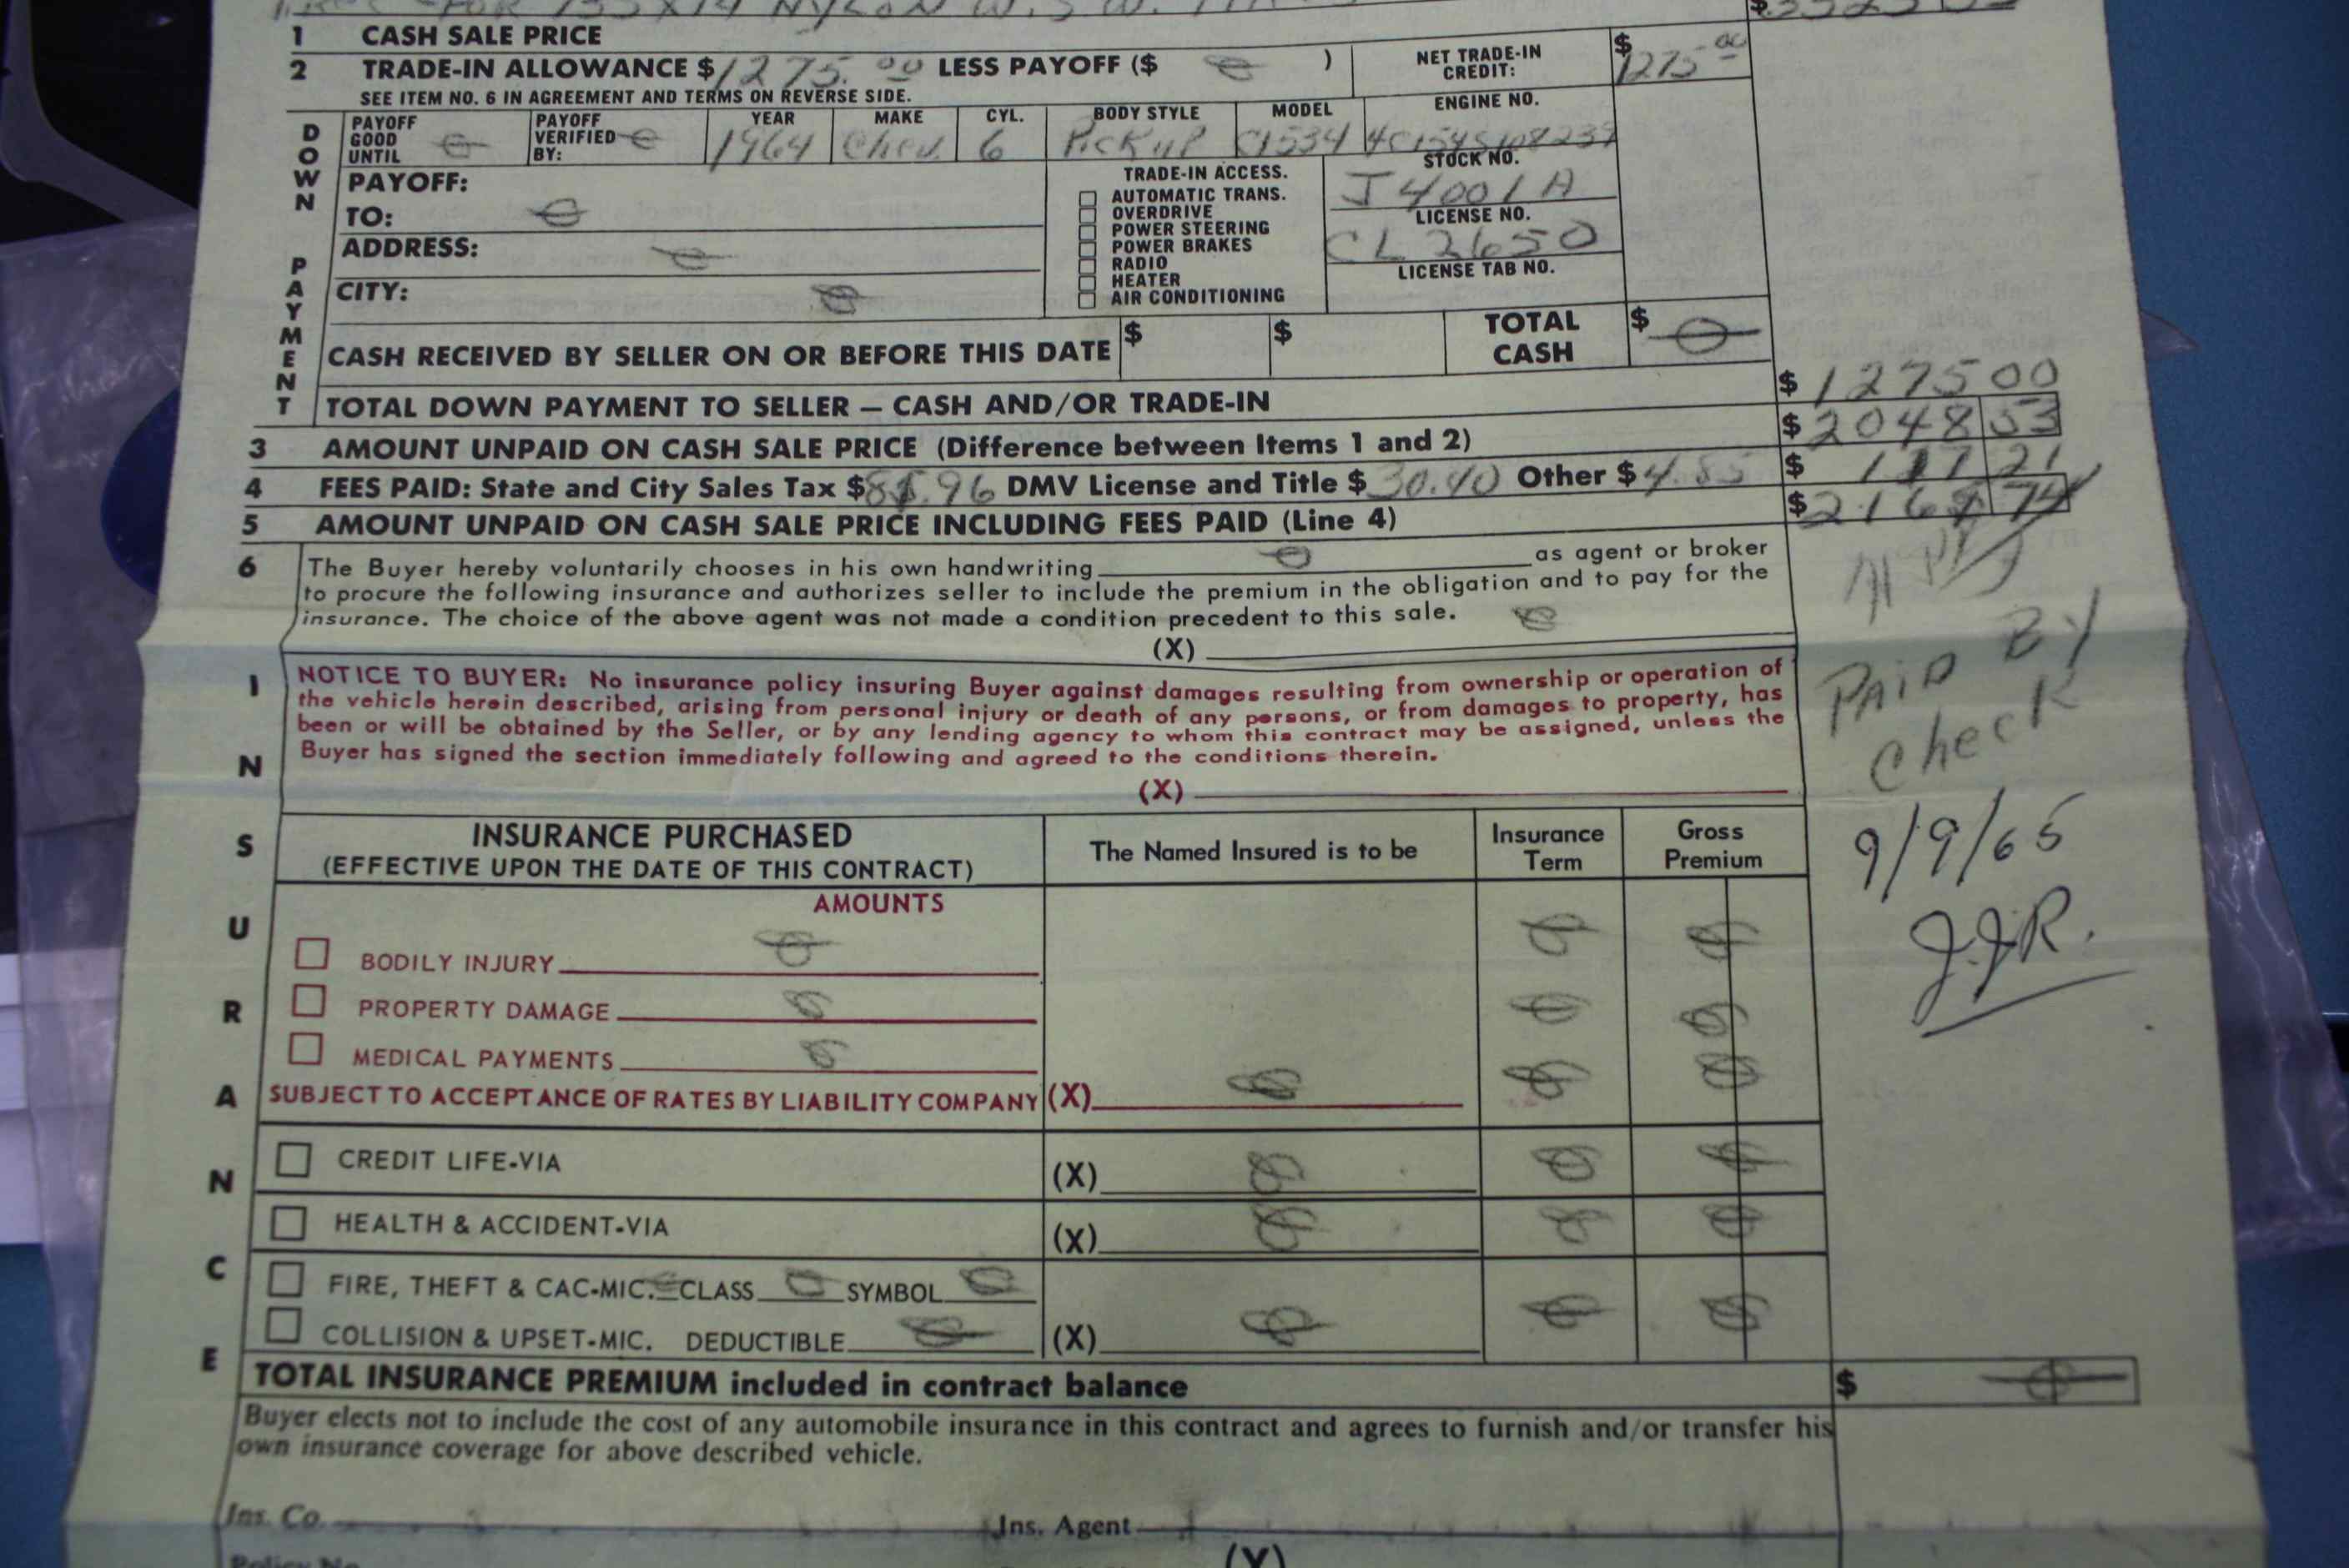 FOR 735X14 NYLON W.S.W.
1 CASH SALE PRICE $3323
2 TRADE-IN ALLOWANCE $1275.00 LESS PAYOFF ($ ) NET TRADE-IN CREDIT: $1275 00
SEE ITEM NO. 6 IN AGREEMENT AND TERMS ON REVERSE SIDE.
DOWN PAYMENT
PAYOFF GOOD UNTIL PAYOFF VERIFIED BY: YEAR MAKE CYL. BODY STYLE MODEL ENGINE NO.
1964 Chev. 6 Pickup C1534 4C154S108239
PAYOFF:
TO:
ADDRESS:
CITY:
TRADE-IN ACCESS.
AUTOMATIC TRANS.
OVERDRIVE
POWER STEERING
POWER BRAKES
RADIO
HEATER
AIR CONDITIONING
STOCK NO.
J4001A
LICENSE NO.
CL 2650
LICENSE TAB NO.
CASH RECEIVED BY SELLER ON OR BEFORE THIS DATE $ $ TOTAL CASH $ 0
TOTAL DOWN PAYMENT TO SELLER — CASH AND/OR TRADE-IN $ 1275 00
3 AMOUNT UNPAID ON CASH SALE PRICE (Difference between Items 1 and 2) $ 2048 53
4 FEES PAID: State and City Sales Tax $ DMV License and Title $ 30.40 Other $ 4.85 $ 21
5 AMOUNT UNPAID ON CASH SALE PRICE INCLUDING FEES PAID (Line 4) $ 74
6 The Buyer hereby voluntarily chooses in his own handwriting as agent or broker
to procure the following insurance and authorizes seller to include the premium in the obligation and to pay for the
insurance. The choice of the above agent was not made a condition precedent to this sale.
(X)
PAID BY
Check
9/9/65
J.J.R.
INSURANCE
NOTICE TO BUYER: No insurance policy insuring Buyer against damages resulting from ownership or operation of
the vehicle herein described, arising from personal injury or death of any persons, or from damages to property, has
been or will be obtained by the Seller, or by any lending agency to whom this contract may be assigned, unless the
Buyer has signed the section immediately following and agreed to the conditions therein.
(X)
INSURANCE PURCHASED
(EFFECTIVE UPON THE DATE OF THIS CONTRACT)
The Named Insured is to be
Insurance Term
Gross Premium
AMOUNTS
BODILY INJURY
PROPERTY DAMAGE
MEDICAL PAYMENTS
SUBJECT TO ACCEPTANCE OF RATES BY LIABILITY COMPANY (X)
CREDIT LIFE-VIA (X)
HEALTH & ACCIDENT-VIA (X)
FIRE, THEFT & CAC-MIC. CLASS SYMBOL
COLLISION & UPSET-MIC. DEDUCTIBLE (X)
TOTAL INSURANCE PREMIUM included in contract balance $
Buyer elects not to include the cost of any automobile insurance in this contract and agrees to furnish and/or transfer his
own insurance coverage for above described vehicle.
Ins. Co. Ins. Agent
Policy No.
(X)